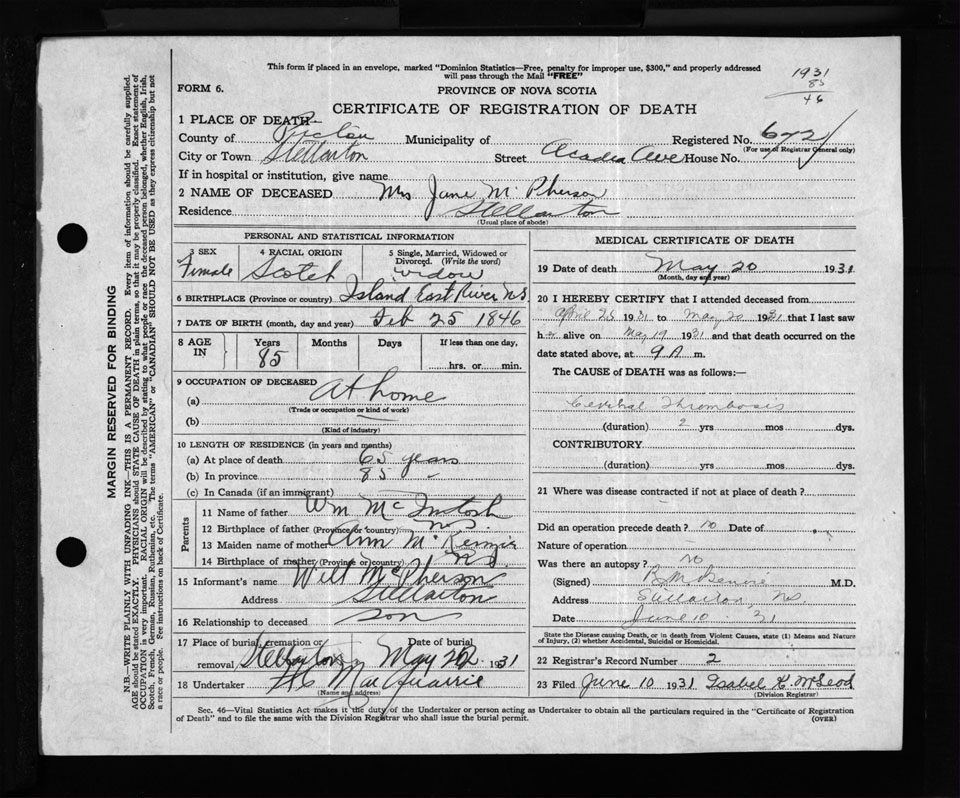 This form if placed in an envelope, marked "Dominion Statistics—Free, penalty for improper use, $300," and properly addressed
will pass through the Mail "FREE"
1931
85
46
FORM 6.
PROVINCE OF NOVA SCOTIA
CERTIFICATE OF REGISTRATION OF DEATH
1 PLACE OF DEATH—
County of Pictou Municipality of Registered No. 672
(For use of Registrar General only)
City or Town Stellarton Street Acadia Ave House No.
If in hospital or institution, give name
2 NAME OF DECEASED Mrs Jane McPherson
Residence Stellarton
(Usual place of abode)
MARGIN RESERVED FOR BINDING
N.B.—WRITE PLAINLY WITH UNFADING INK—THIS IS A PERMANENT RECORD. Every item of information should be carefully supplied.
AGE should be stated EXACTLY. PHYSICIANS should STATE CAUSE OF DEATH in plain terms, so that it may be properly classified. Exact statement of
OCCUPATION is very important. RACIAL ORIGIN will be described by stating to what people or race the deceased person belonged, whether English, Irish,
Scotch, French, German, Russian, Ruthenian, etc. The terms "AMERICAN" or "CANADIAN" SHOULD NOT BE USED as they express citizenship but not
a race or people. See instructions on back of Certificate.
PERSONAL AND STATISTICAL INFORMATION
3 SEX
Female
4 RACIAL ORIGIN
Scotch
5 Single, Married, Widowed or
Divorced. (Write the word)
widow
6 BIRTHPLACE (Province or country) Island East River N.S.
7 DATE OF BIRTH (month, day and year) Feb 25 1846
8 AGE IN
Years Months Days If less than one day,
85 hrs. or min.
9 OCCUPATION OF DECEASED
(a) At home
(Trade or occupation or kind of work)
(b)
(Kind of industry)
10 LENGTH OF RESIDENCE (in years and months)
(a) At place of death 65 years
(b) In province 85 "
(c) In Canada (if an immigrant)
Parents
11 Name of father Wm McIntosh
12 Birthplace of father (Province or country) N.S.
13 Maiden name of mother Ann McKenzie
14 Birthplace of mother (Province or country) N.S.
15 Informant's name Will McPherson
Address Stellarton
16 Relationship to deceased son
17 Place of burial, cremation or Date of burial
removal Stellarton May 22 1931
18 Undertaker MacQuarrie
(Name and address)
MEDICAL CERTIFICATE OF DEATH
19 Date of death May 20 1931
(Month, day and year)
20 I HEREBY CERTIFY that I attended deceased from
April 25 1931 to May 20 1931 that I last saw
her alive on May 19 1931 and that death occurred on the
date stated above, at 9 A m.
The CAUSE of DEATH was as follows:—
Cerebral Thrombosis
(duration) 2 yrs mos dys.
CONTRIBUTORY
(duration) yrs mos dys.
21 Where was disease contracted if not at place of death?
Did an operation precede death? no Date of
Nature of operation
Was there an autopsy? no
(Signed) M.D.
Address Stellarton, N.S.
Date June 10 31
State the Disease causing Death, or in death from Violent Causes, state (1) Means and Nature
of Injury, (2) whether Accidental, Suicidal or Homicidal.
22 Registrar's Record Number 2
23 Filed June 10 1931 Isabel K. McLeod
(Division Registrar)
Sec. 46—Vital Statistics Act makes it the duty of the Undertaker or person acting as Undertaker to obtain all the particulars required in the "Certificate of Registration
of Death" and to file the same with the Division Registrar who shall issue the burial permit.
(OVER)